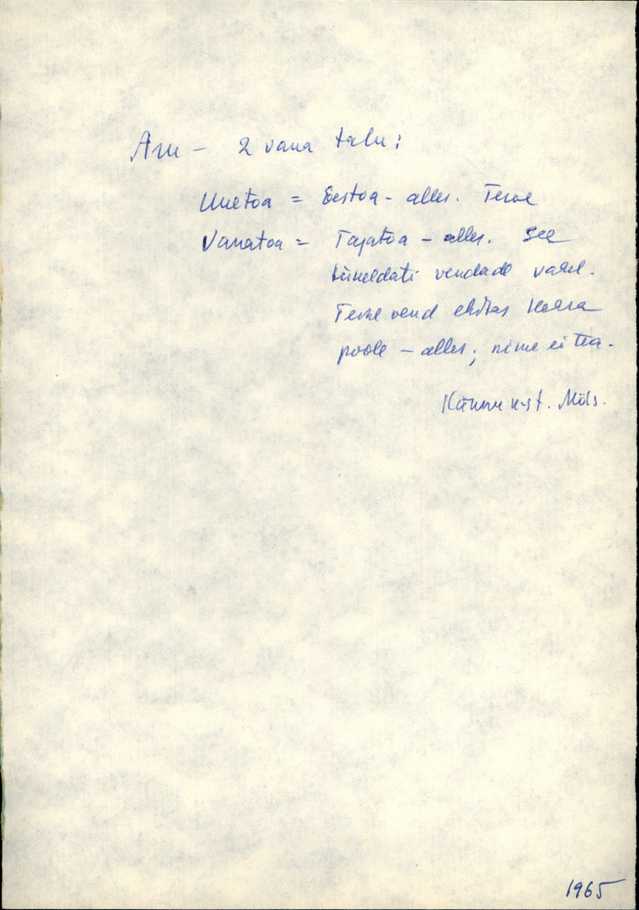 Aru - 2 vana talu:
Uuetoa = Eestoa - alles. Terve
Vanatoa = Tagatoa - alles. See
tükeldati vendade vahel.
Teine vend ehitas
poole - alles; nime ei tea.
Mus.
1965